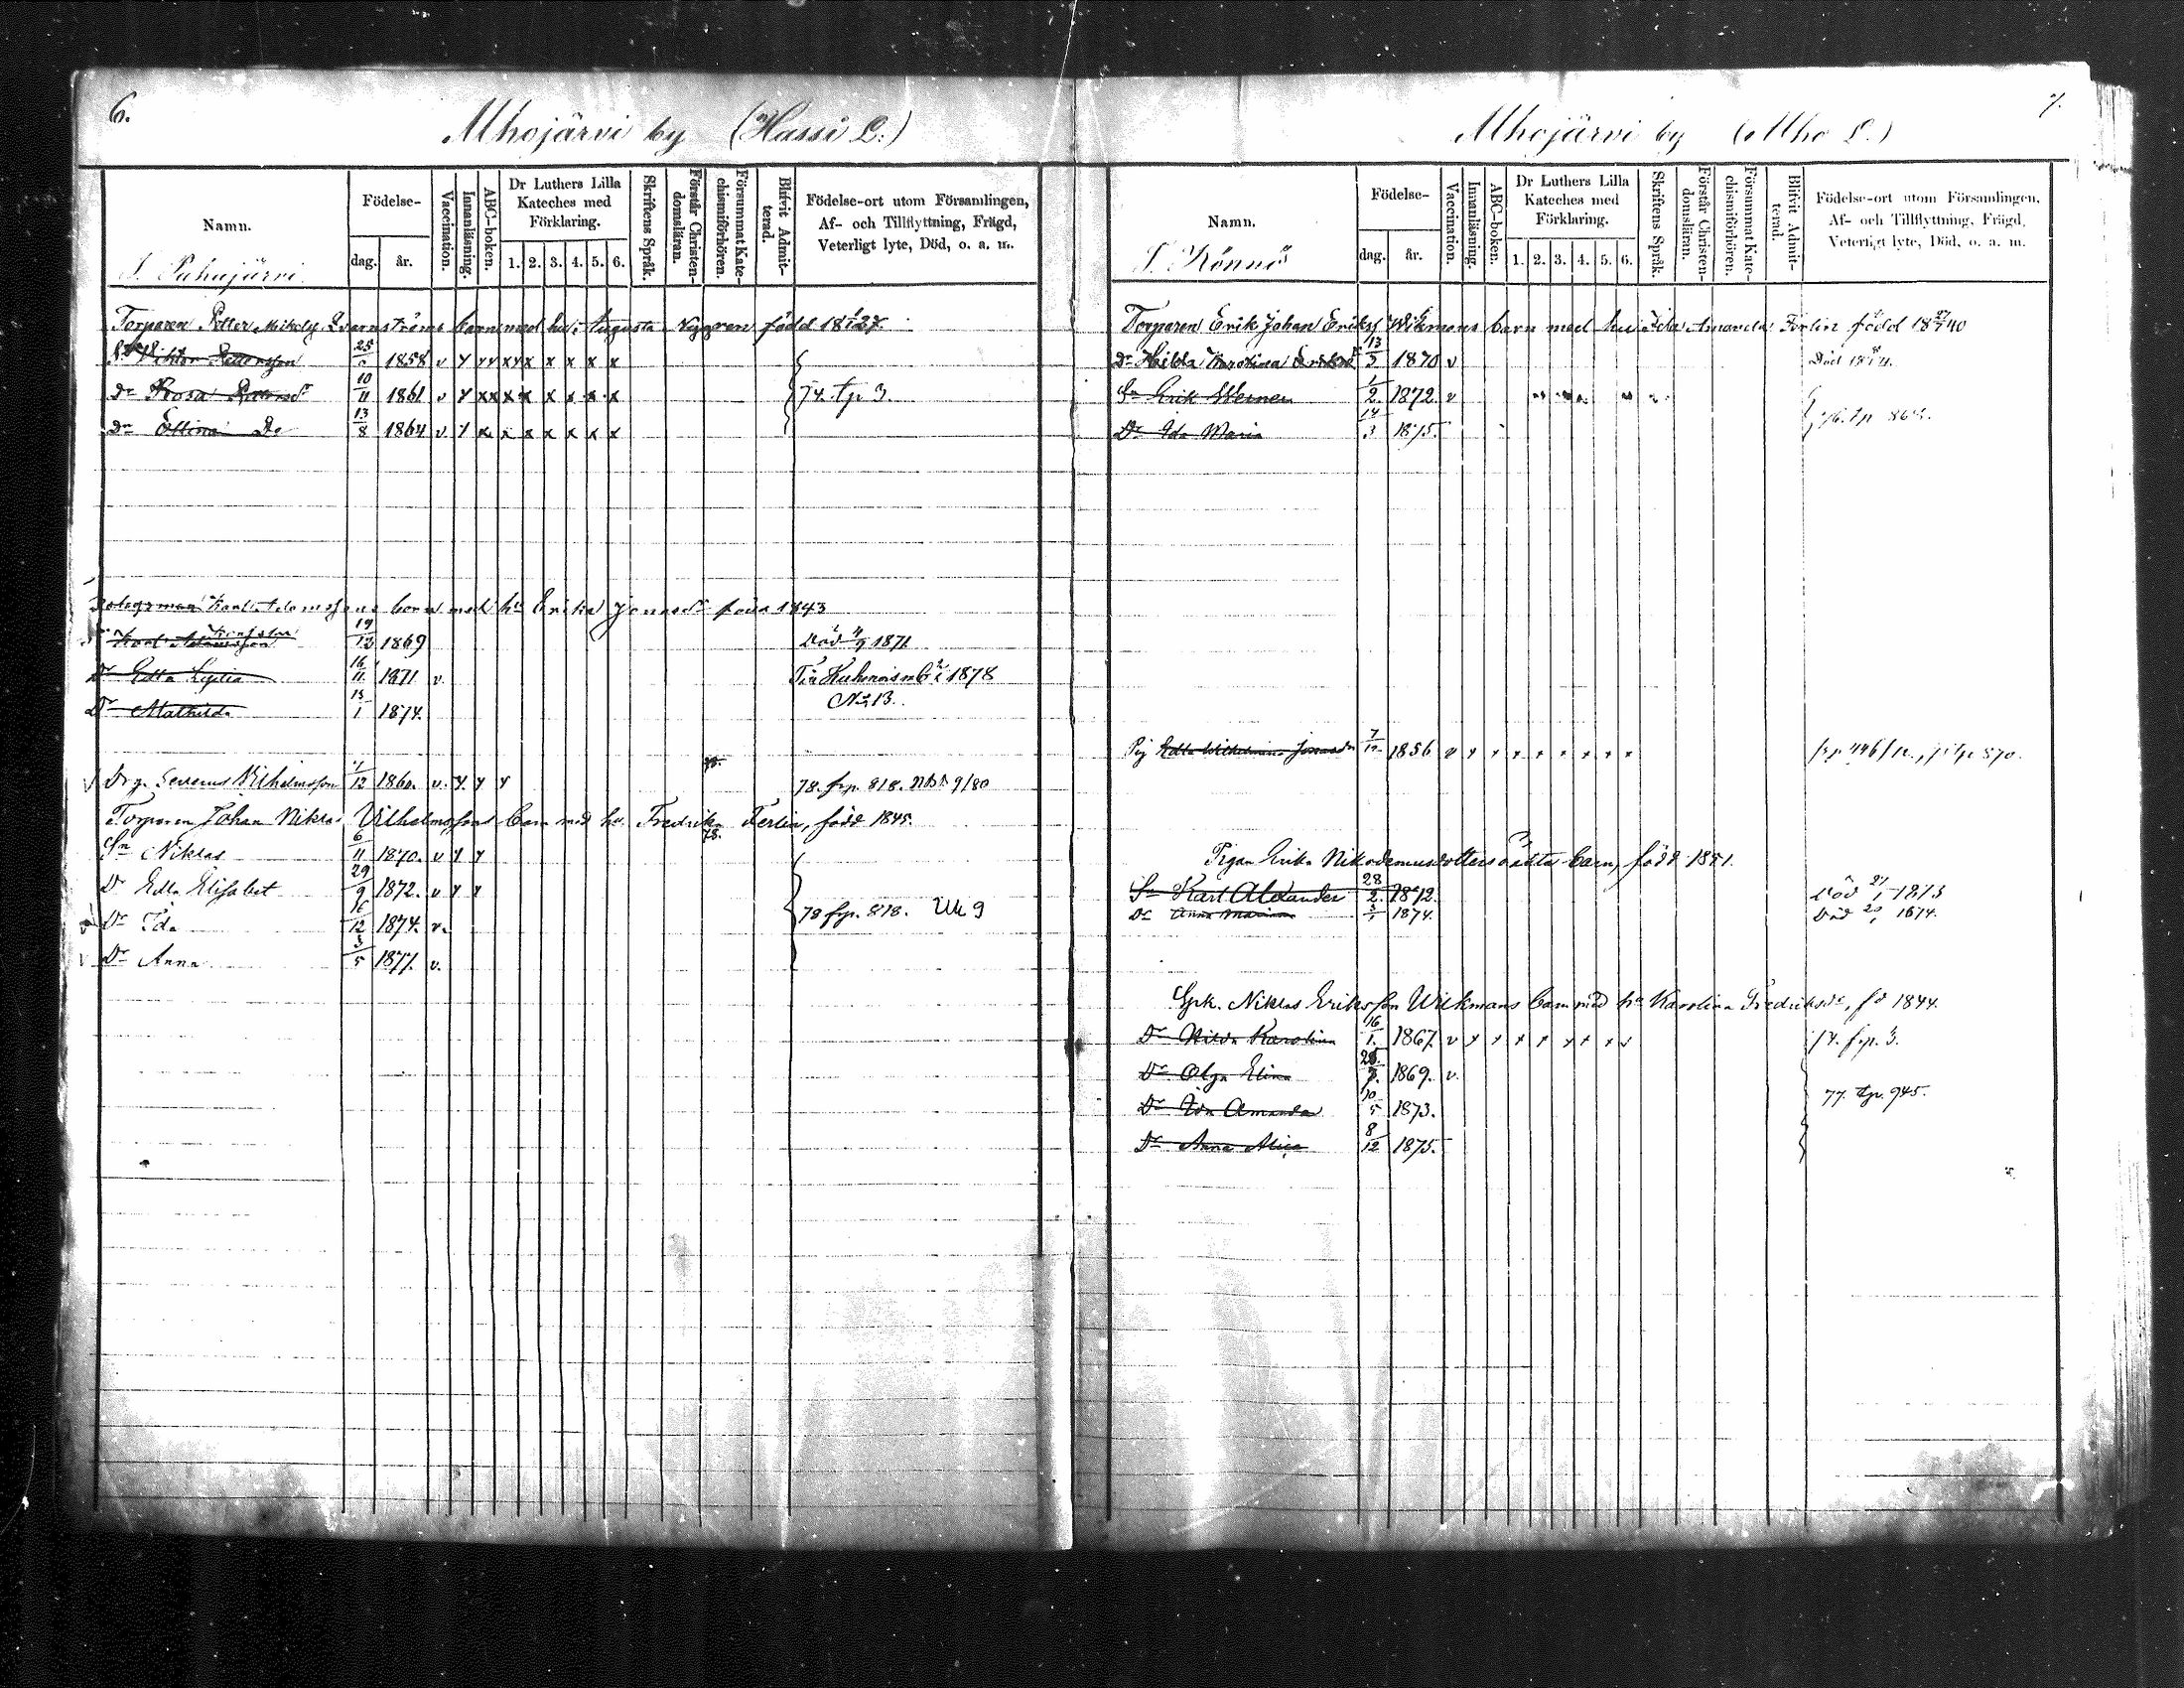 6.
Uhojärvi by (Hassi L.)
Namn.
Födelse-
dag.
år.
Vaccination.
Innanläsning.
ABC-boken.
Dr Luthers Lilla Kateches med Förklaring.
1. 2. 3. 4. 5. 6.
Skriftens Språk.
Förstår Christendomsläran.
Försummat Katechismiförhören.
Blifvit Admitterad.
Födelse-ort utom Församlingen, Af- och Tillflyttning, Frägd, Veterligt lyte, Död, o. a. m.
T. Puhujärvi
Torparen Petter Mikelss. Qvarnströms barn med hu: Augusta Nygren född 18 27.
Sn Viktor Pettersson 25 1858 v y xx x x x x x x x
Dr Rosa Pettersdr 10/11 1861 v y xx x x x x x x 74. tp 3.
Dr Ellina Do 13/8 1864 v y x x x x x x x
barn med hu Erika Jonasdr född 1843
Karl 19/12 1869 Död 1871
Dr Edla Lydia 16/11 1971 v. 1878
Dr Mathilda 13/1 1874. No 13.
Drg. Severus Wilhelmsson /12 1860. v. y. y y 78. frp. 818. 9/80
Torparen Johan Niklas Vilhelmssons barn med hu. Fredrika Ferlin, född 1845.
Sn Niklas 6/11 1870. v y y
Dr Edla Elisabet 29/9 1872. v y y
Dr Ida 16/12 1874. v. 78 frp. 818. Uk 9
Dr Anna 3/5 1877. v.
7.
Uhojärvi by (Uho L.)
Namn.
Födelse-
dag.
år.
Vaccination.
Innanläsning.
ABC-boken.
Dr Luthers Lilla Kateches med Förklaring.
1. 2. 3. 4. 5. 6.
Skriftens Språk.
Förstår Christendomsläran.
Försummat Katechismiförhören.
Blifvit Admitterad.
Födelse-ort utom Församlingen, Af- och Tillflyttning, Frägd, Veterligt lyte, Död, o. a. m.
T. Rönni
Torparen Erik Johan Erikss Wikmans barn med hu Ida Amanda Ferlin född 18 40
Dr Hilda Karolina Eriksdr 13/3 1870 v Död 18 74.
Sn Erik Werner 1/2 1872 v
Dr Ida Maria 14/3 1875. 76. tp 864.
Pig Edla Wilhelmina Jonasdr 7/12 1856 v y x x x x x x x frp 446/
Pigan Erika Nikodemusdotters oäkta barn, född 1851.
Sn Karl Alexander 28/2. 1872. Död 1873
Dr Anna Maria 1874. Död 1874.
Spk. Niklas Eriksson Wikmans barn med hu Karolina Fredriksdr, fd 1844.
Dr Hilda Karolina 16/1. 1867. v x x x x x x x v 74. frp. 3.
Dr Olga Elina 1869. v.
Dr Ida Amanda 10/5 1873. 77. tp. 945.
Dr Anna Alica 8/12 1875.